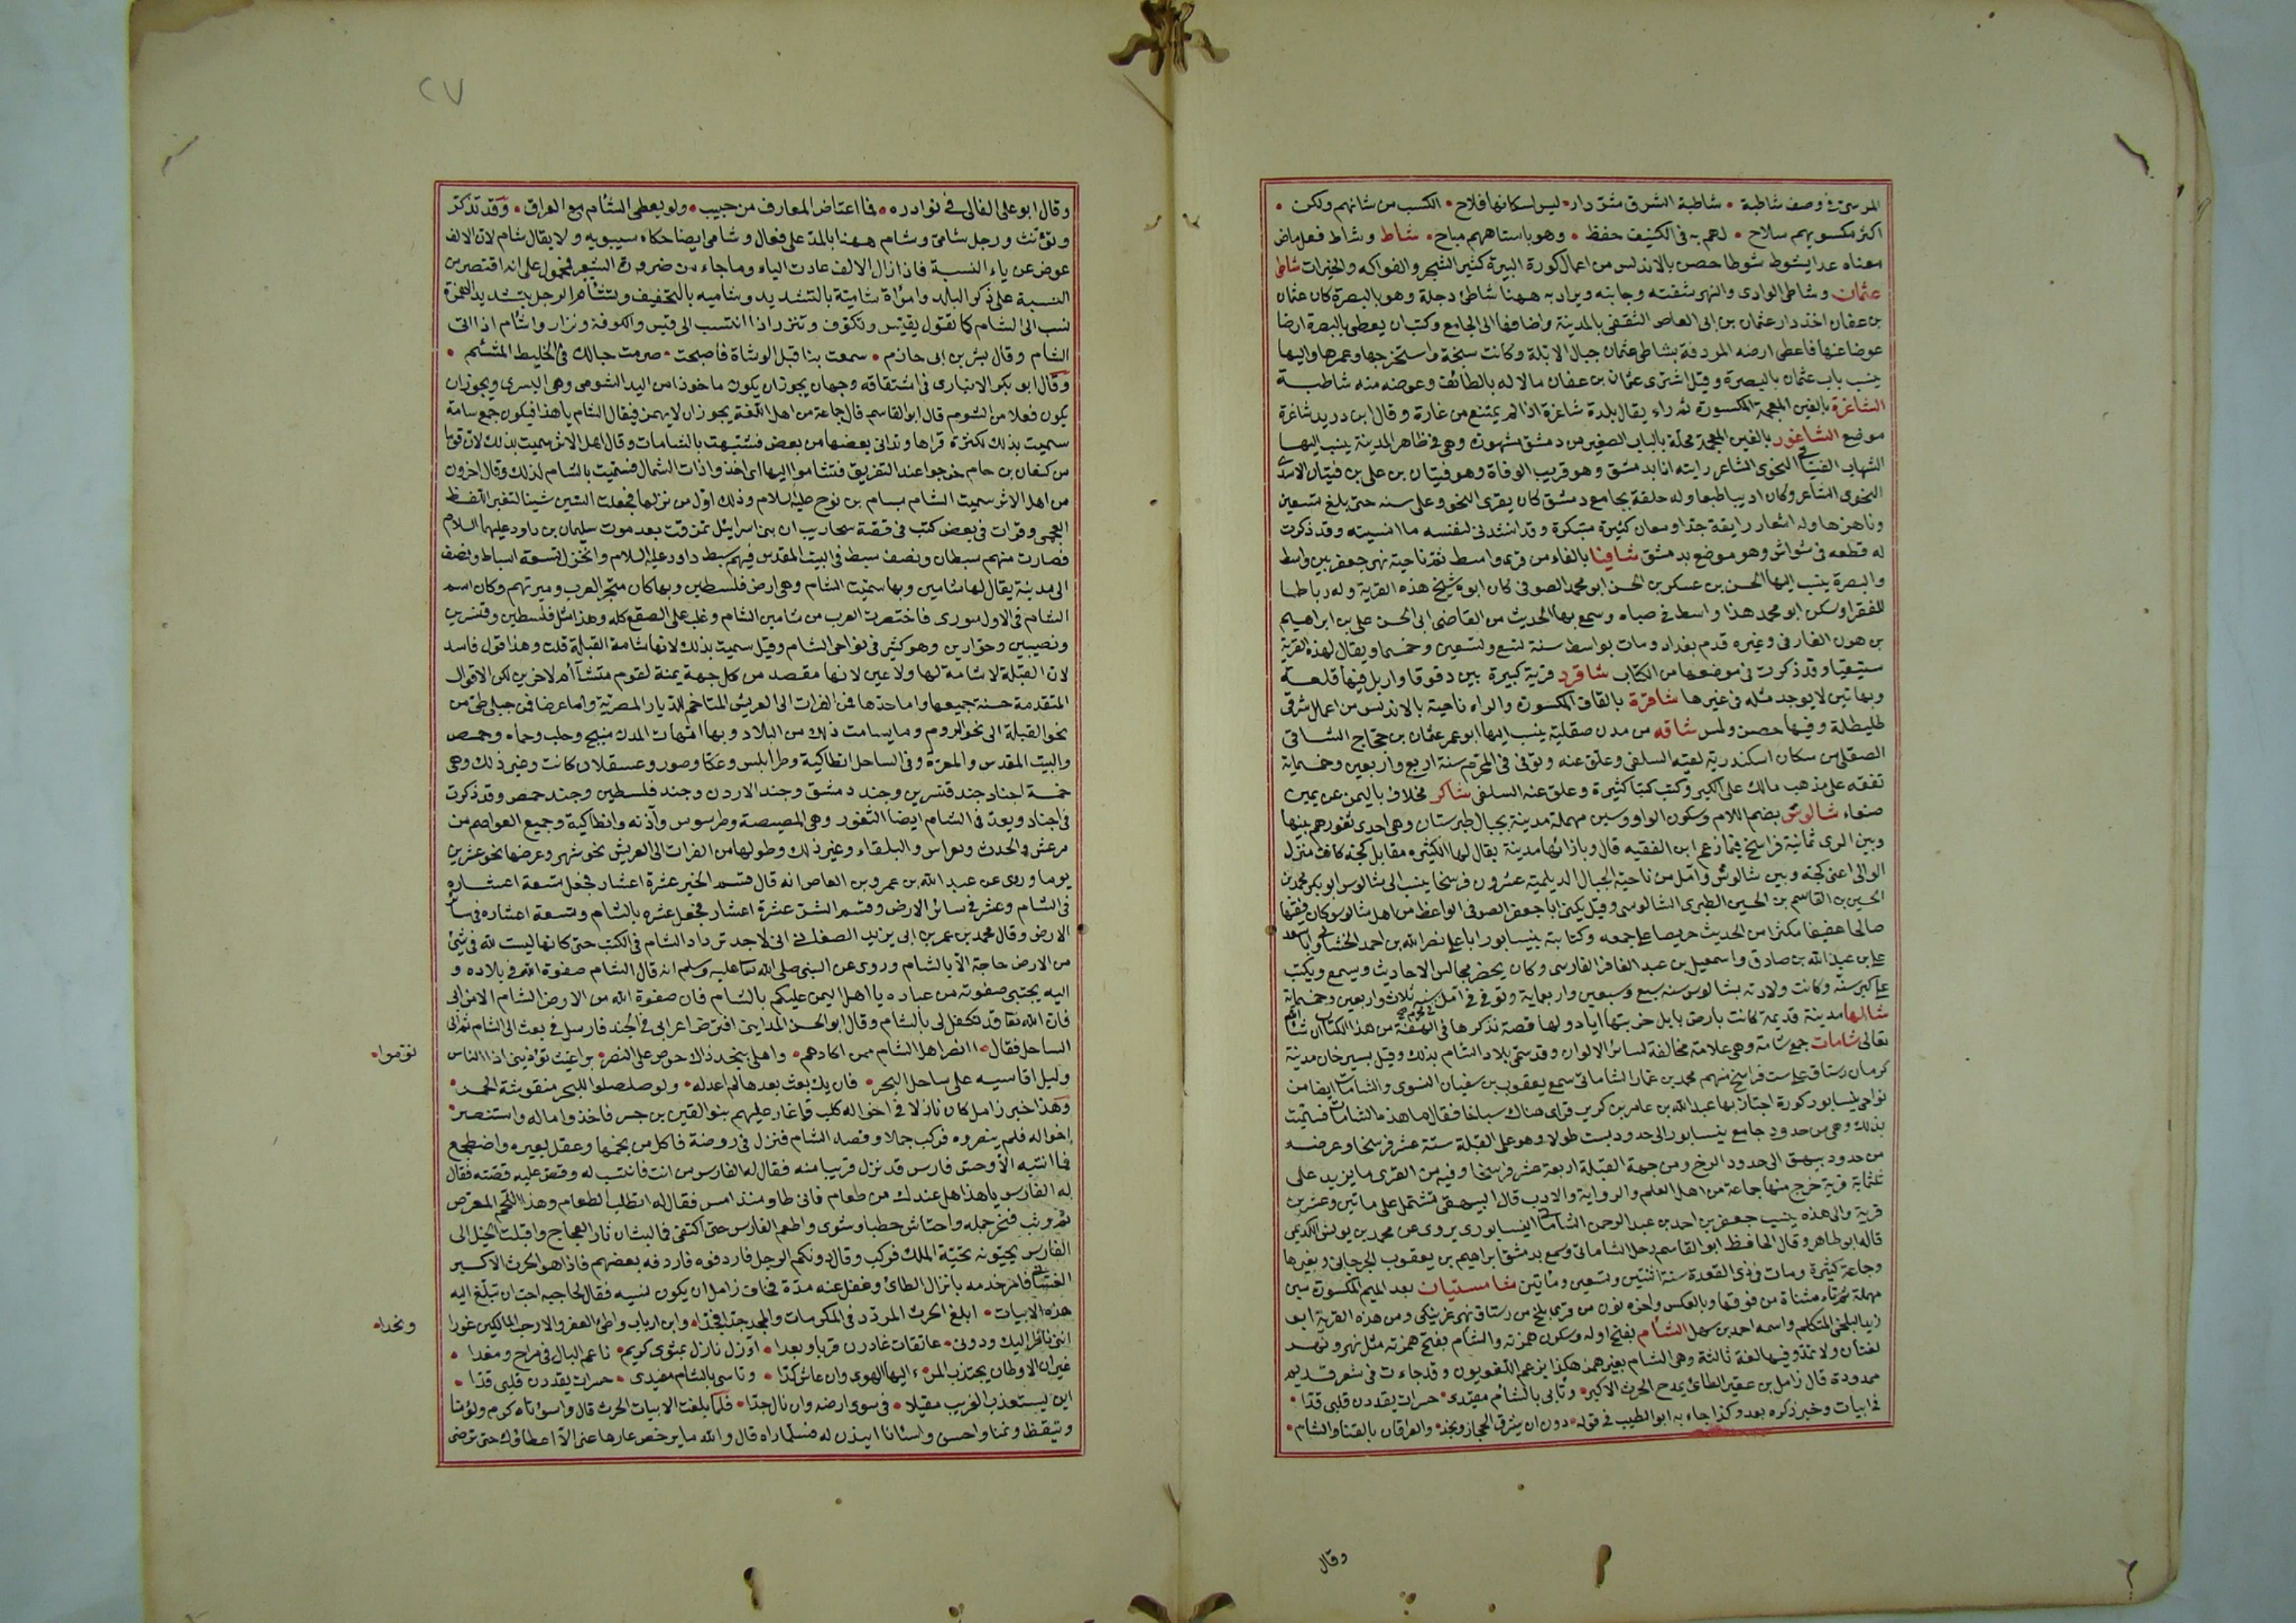 المرسي في وصف شاطبة • شاطبة الشرق شر دار • ليس لسكانها فلاح • الكسب من شانهم ولكن •
اكثر مكسوبهم سلاح • لهم به في الكنيف حفظ • وهو باستاههم مباح • شاط وشاط فعل ماض
معناه عدا يشوط شوطا حصن بالاندلس من اعمال كورة البيرة كثير الشجر والفواكه والخيرات شاطئ
عثمان وشاطئ الوادى والنهر شفته وجانبه ويراد به ههنا شاطئ دجلة وهو بالبصرة كان عثمان
بن عفان اخذ دار عثمان بن ابى العاص الثقفى بالمدينة واضافها الى الجامع وكتب ان يعطى بالبصرة ارضا
عوضا عنها فاعطى ارضه المردفة بشاطئ عثمان حيال الابلة وكانت سبخة واستخرجها وعمرها واليها
ينسب باب عثمان بالبصرة وقيل اشترى عثمان بن عفان مالا له بالطائف وعوضه منه شاطبة
الشاغرة بالغين المعجمة المكسورة ثم راء يقال بلدة شاغرة اذا لم يمتنع من غارة وقال ابن دريد شاغرة
موضع الشاغور بالغين المعجمة محلة بالباب الصغير من دمشق مشهورة وهى في ظاهر المدينة ينسب اليها
الشهاب الفتيانى النحوى الشاعر رايته انا بدمشق وهو قريب الوفاة وهو فتيان بن على بن فتيان الاسدى
النحوى الشاعر وكان اديبا طبعا وله حلقة بجامع دمشق كان يقرى النحو وعلى سنه حتى بلغ تسعين
وناهزها وله اشعار رايقة جدا ومعان كثيرة مبتكرة وقد انشدنى لنفسه ما انسيته وقد ذكرت
له قطعه فى شواش وهو موضع بدمشق شافيا بالفاء من قرى واسط ثم ناحية نهر جعفر بين واسط
والبصرة ينسب اليها الحسن بن عسكر بن الحسن ابو محمد الصوفى كان ابوه شيخ هذه القرية وله رباط بها
للفقرا وسكن ابو محمد هذا واسط في صباه وسمع بها الحديث من القاضى ابى الحسن على بن ابراهيم
بن عون الفارقى وغيره قدم بغداد ومات بواسط سنة تسع وتسعين وخمسما ويقال لهذه القرية
شيقيا وقد ذكرت فى موضعها من الكتاب شاقرد قرية كبيرة بين دقوقا واربل فيها قلعة
وبها تين لا يوجد مثله فى غيرها شاقرّة بالقاف المكسورة والراء ناحية بالاندلس من اعمال شرقى
طليطلة وفيها حصن ولمس شاقه من مدن صقلية ينسب اليها ابو عمر عثمان بن حجاج الشاقى
الصقلى من سكان اسكندرية لقيه السلفى وعلق عنه وتوفى فى المحرم سنة اربع واربعين وخمسماية
تفقه على مذهب مالك على الكبر وكتب كتبا كثيرة وعلق عنه السلفى شاكر مخلاف باليمن عن يمين
صنعاء شالوس بضم اللام وسكون الواو وسين مهملة مدينة بجبال طبرستان وهى احدى ثغورهم بينها
وبين الرى ثمانية فراسخ فيما زعم ابن الفقيه قال وبازائها مدينة يقال لها الكثيره مقابل كجه كانت منزل
الوالى اعنى كجه وبين شالوس وآمل من ناحية الجبال الديلمية عشرون فرسخا ينسب الى شالوس ابو بكر محمد بن
الحسين بن القاسم بن الحسين الطبرى الشالوسى وقيل يكنى ابا جعفر الصوفى الواعظ من اهل شالوس كان فقيها
صالحا عفيفا مكثرا من الحديث حريصا على جمعه وكتابته بنيسابور ابا على نصر الله بن احمد الخشنامى وابا سعد
على بن عبد الله بن صادق واسمعيل بن عبد الغافر الفارسى وكان يحضر مجالس الاحاديث ويسمع ويكتب
على كبر سنه وكانت ولادته بشالوس سنه سبع وسبعين واربعماية وتوفى فى آمل فى محرم سنه ثلاث واربعين وخمسماية
شالها مدينة قديمة كانت بارض بابل خربتها اياد ولها قصة نذكرها فى الهفة من هذا الكتاب ان شا الله
تعالى شامات جمع شامة وهى علامة مخالفة لسائر الالوان وقد سمى بلاد الشام بذلك وقيل بسيرجان مدينة
كرمان رستاق على ست فراسخ منهم محمد بن عمار الشاماتى سمع يعقوب بن سفيان النسوى والشامات ايضا من
نواحى نيسابور كورة اجتاز بها عبد الله بن عامر بن كريز فراى هناك سباخا فقال ما هذه الشامات فسميت
بذلك وهى من حدود جامع نيسابور الى حدود بست طولا وهو على القبلة ستة عشر فرسخا وعرضه
من حدود بيهق الى حدود الرخ ومن جهة القبلة اربعة عشر فرسخا وفيه من القرى ما يزيد على
ثلثماية قرية خرج منها جماعة من اهل العلم والرواية والادب قال البيهقى تشتمل على ماتين وعشرين
قرية والى هذه ينسب جعفر بن احمد بن عبد الرحمن الشاماتى النيسابورى يروى عن محمد بن يونس الكديمى
قاله ابو طاهر وقال الحافظ ابو القاسم رحل الشاماتى وسمع بدمشق ابراهيم بن يعقوب الجرجانى وبغيرها
وجماعة كثيرة ومات فى ذى القعدة سنة اثنتين وتسعين ومأتين شامستيان بعد الميم المكسورة سين
مهملة ثم تاء مثناة من فوقها وبالعكس واخره نون من قرى بلخ من رستاق نهر غربنكى ومن هذه القرية ابو
زيد البلخى المتكلم واسمه احمد بن سهل الشأم بفتح اوله وسكون همزته والشأم بفتح همزته مثل نهر ونهر
لغتان ولا تمدّ وفيها لغة ثالثة وهى الشام بغير همز هكذا يزعم اللغويون وقد جاءت فى شعر قديم
ممدودة قال زامل بن عفير الطائى يمدح الحرث الاكبر • وتأبى بالشأم مفيدى • حسرات يقددن قلبى قدّا •
فى ابيات وخبر ذكره بعد وكذا جاء به ابو الطيب فى قوله • دون ان يشرق الحجاز ونجد • والعراقان بالقنا والشام •
وقال
٢٧
وقال ابو على القالى فى نوادره • فما اعتاض المعارف من حبيب • ولو يعطى الشئام مع العراق • وقد تذكر
وتؤنث ورجل شامى وشام ههنا بالمد على فعال وشامى ايضا حكاه سيبويه ولا يقال شام لان الالف
عوض عن ياء النسبة فاذا زال الالف عادت الياء وما جاء من ضرورة الشعر فمحمول على انه اقتصر من
النسبة على ذكر البلد وامرأة شامية بالتشديد وشاميه بالتخفيف وتشأم الرجل بتشديد الهمزة
نسب الى الشام كما تقول تقيس وتكوف وتنزر اذا انتسب الى قيس والكوفة ونزار واشأم اذا اتى
الشام وقال بشر بن ابى حازم • سمعت بنا قبل الوشاة فاصبحت • صرمت حبالك فى الخليط المشئم •
وقال ابو بكر الانبارى فى اشتقاقه وجهان يجوز ان يكون ماخوذا من اليد الشومى وهى اليسرى ويجوز ان
يكون فعلا من الشوم قال ابو القاسم قال جماعة من اهل اللغة يجوز ان لا يهمز فيقال الشام يا هذا فيكون جمع شامة
سميت بذلك لكثرة قراها وتدانى بعضها من بعض فشبهت بالشامات وقال اهل الاثر سميت بذلك لان قوما
من كنعان بن حام خرجوا عند التفريق فتشاموا اليها اى اخذوا ذات الشمال فسميت بالشام لذلك وقال اخرون
من اهل الاثر سميت الشام بسام بن نوح عليه السلام وذلك اول من نزلها فجعلت السين شينا لتغير اللفظ
العجمى وقرات فى بعض كتب فى قصة سحاريب ان بنى اسرائيل تمزقت بعد موت سليمان بن داود عليهما السلام
فصارت منهم سبطان ونصف سبط فى البيت المقدس فيهم سبط داود عليه السلام وانخزل تسعة اسباط ونصف
الى مدينة يقال لها شامين وبها سميت الشام وهى ارض فلسطين وبها كان متجر العرب وميرتهم وكان اسم
الشام فى الاول سورى فاختصرت العرب من شامين الشام وغلب على الصقع كله وهذا مثل فلسطين وقنسرين
ونصيبين وحوارين وهو كثير فى نواحى الشام وقيل سميت بذلك لانها شامة القبلة قلت وهذا قول فاسد
لان القبلة لا شامة لها ولا يمين لانها مقصد من كل جهة يمنة لقوم وشأمة لاخرين لكن الاقوال
المتقدمة حسنة جميعها واما حدها فمن الفرات الى العريش المتاخم للديار المصرية واما عرضا فمن جبلى طى من
نحو القبلة الى نحو الروم وما يسامت ذلك من البلاد وبها امهات المدن منبج وحلب وحماه وحمص
والبيت المقدس والمعرّة وفى الساحل انطاكية وطرابلس وعكا وصور وعسقلان كانت وغير ذلك وهى
خمسة اجناد جند قنسرين وجند دمشق وجند الاردن وجند فلسطين وجند حمص وقد ذكرت
فى اجناد ويعدّ فى الشام ايضا الثغور وهى المصيصة وطرسوس وآذنه وانطاكية وجميع العواصم من
مرعش والحدث وبغراس والبلقاء وغير ذلك وطولها من الفرات الى العريش نحو شهر وعرضها نحو عشرين
يوما وروى عن عبد الله بن عمرو بن العاص انه قال قسم الخير عشرة اعشار فجعل تسعة اعشاره
فى الشام وعشر فى سائر الارض وقسم الشر عشرة اعشار فجعل عشره بالشام وتسعة اعشاره فى سائر
الارض وقال محمد بن عمر بن ابى يزيد الصغانى انى لاجد ترداد الشام فى الكتب حتى كانها ليست لله فى شئ
من الارض حاجة الا بالشام وروى عن النبى صلى الله تعا عليه وسلم انه قال الشام صفوة الله فى بلاده و
اليه يجتبى صفوته من عباده يا اهل اليمن عليكم بالشام فان صفوة الله من الارض الشام الا من ابى
فان الله تعا قد تكفل لى بالشام وقال ابو الحسن المداينى افترض اعرابى فى الجند فارسل فى بعث الى الشام ثم الى
الساحل فقال • أانصر اهل الشام ممن اكادهم • واهلى بنجد ذاك حرص على النصر • براغيث تؤذينى اذا الناس
نوّموا •
وليل اقاسيه على ساحل البحر • فان يك بعث بعدها لم اعد له • ولو صلصلوا للبحر منقوشة الحمر •
وهذا خبر زامل كان نازلا فى اخواله كلب فاغار عليهم بنو القين بن جسر فاخذوا ماله واستنصر
اخواله فلم ينصروه فركب جملا وقصد الشام فنزل فى روضة فاكل من نجمها وعقل بعيره واضطجع
فما انتبه الا وحس فارس قد نزل قريبا منه فقال له الفارس من انت فانتسب له وقص عليه قصته فقال
له الفارس يا هذا هل عندك من طعام فانى طاو منذ امس فقال له اتطلب الطعام وهذا اللحم المعرّض
ثم وثب فنحر جمله واحتش حطبا وشوى واطعم الفارس حتى اكتفى فما لبث ان ثار العجاج واقبلت الخيل الى
الفارس يحيّونه تحيّة الملك فركب وقال دونكم الرجل فاردفوه فاردفه بعضهم فاذا هو الحرث الاكبر
الغسانى فامر خدمه بانزال الطائى وغفل عنه مدّة فخاف زامل ان يكون نسيه فقال لحاجبه احب ان تبلّغ اليه
هذه الابيات • ابلغ الحرث المردّد فى المكرمات والمجد جدّا فجدّا • وابن ارباب واطئ العفر والارحب المالكين غورا
ونجدا •
اننى ناظر اليك ودونى • عاتقات غاورن قربا وبعدا • آزل نازل بمثوى كريم • ناعم البال فى مراح ومغدا •
غير ان الاوطان يجتذب المرء اليها الهوى وان عاش كدّا • وتاسى بالشام مفيدى • حسرات يقددن قلبى قدّا •
اين يستعذب الغريب مقيلا • فى سوى ارضه وان نال جدّا • فلما بلغت الابيات الحرث قال واسوأتاه كرم ولؤمنا
وتيقظ ونمنا واحسن واسأنا ايذن له فلما راه قال والله ما يرحض عارها عنى الا اعطاؤك حتى ترضى